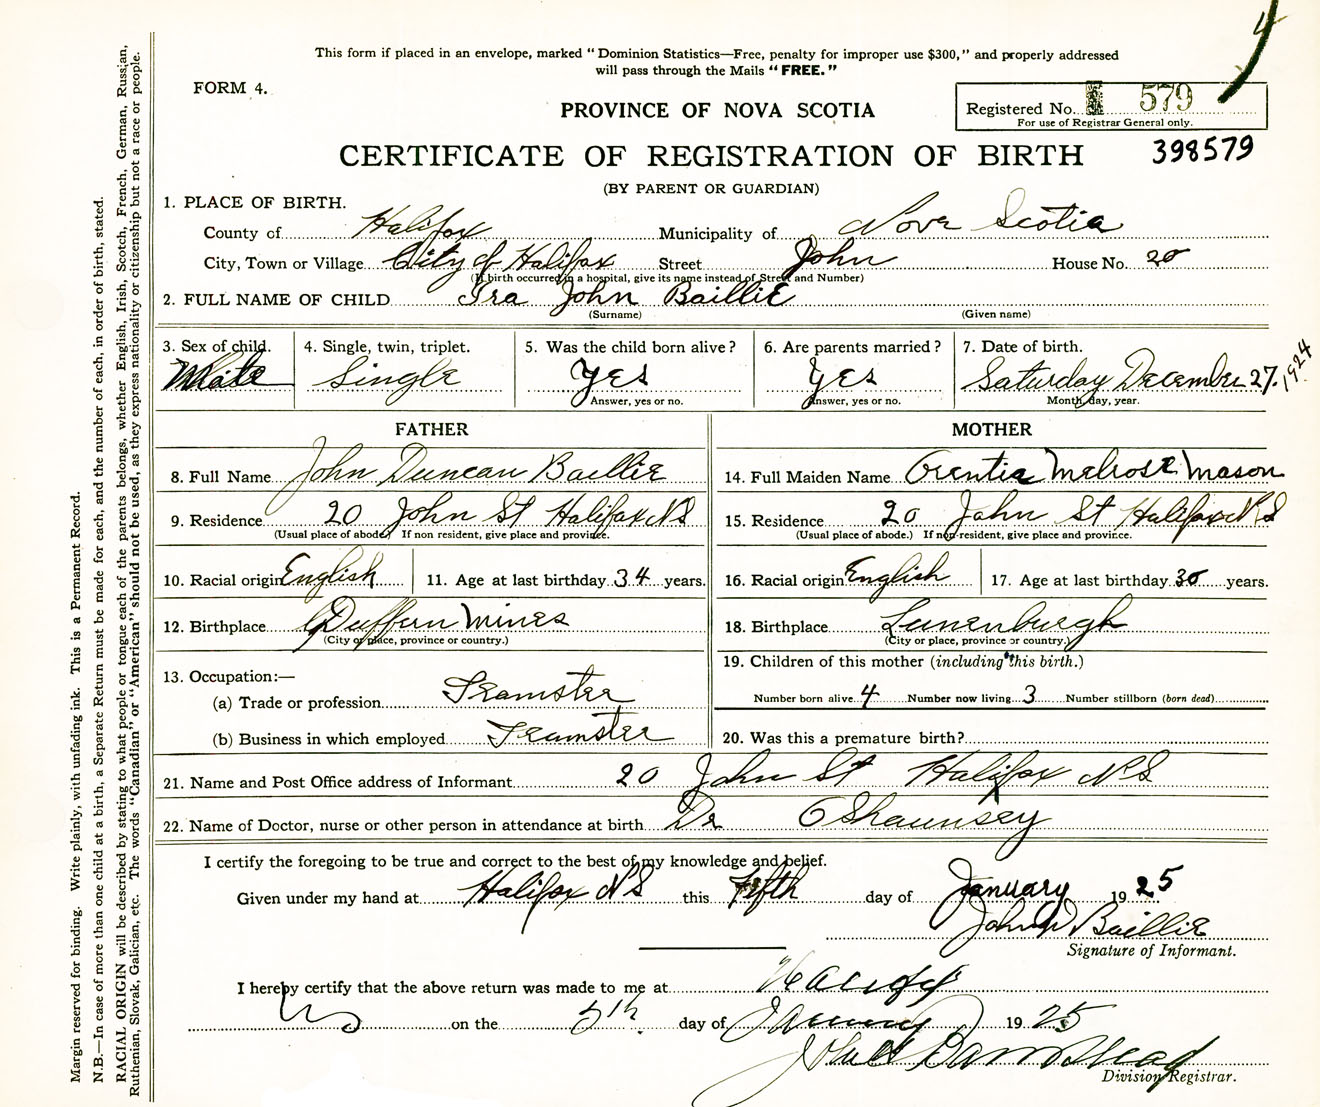 This form if placed in an envelope, marked "Dominion Statistics—Free, penalty for improper use $300," and properly addressed
will pass through the Mails "FREE."
FORM 4.
PROVINCE OF NOVA SCOTIA
Registered No. 579
For use of Registrar General only.
CERTIFICATE OF REGISTRATION OF BIRTH
398579
(BY PARENT OR GUARDIAN)
1. PLACE OF BIRTH.
County of Halifax Municipality of Nova Scotia
City, Town or Village City of Halifax Street John House No. 20
(If birth occurred in a hospital, give its name instead of Street and Number)
2. FULL NAME OF CHILD Ira John Baillie
(Surname) (Given name)
3. Sex of child. 4. Single, twin, triplet. 5. Was the child born alive? 6. Are parents married? 7. Date of birth.
Male Single Yes Yes Saturday December 27. 1924
Answer, yes or no. Answer, yes or no. Month, day, year.
FATHER MOTHER
8. Full Name John Duncan Baillie 14. Full Maiden Name Orentia Melrose Mason
9. Residence 20 John St Halifax NS 15. Residence 20 John St Halifax NS
(Usual place of abode.) If non resident, give place and province. (Usual place of abode.) If non-resident, give place and province.
10. Racial origin English 11. Age at last birthday 34 years. 16. Racial origin English 17. Age at last birthday 30 years.
12. Birthplace Duffern Mines 18. Birthplace Lunenburgh
(City or place, province or country.) (City or place, province or country.)
13. Occupation:— 19. Children of this mother (including this birth.)
(a) Trade or profession Teamster Number born alive 4 Number now living 3 Number stillborn (born dead)
(b) Business in which employed Teamster 20. Was this a premature birth?
21. Name and Post Office address of Informant 20 John St Halifax NS
22. Name of Doctor, nurse or other person in attendance at birth Dr OShaunsey
I certify the foregoing to be true and correct to the best of my knowledge and belief.
Given under my hand at Halifax NS this Fifth day of January 1925
John D Baillie
Signature of Informant.
I hereby certify that the above return was made to me at Halifax
NS on the 5th day of January 1925
Division Registrar.
Margin reserved for binding. Write plainly, with unfading ink. This is a Permanent Record.
N.B.—In case of more than one child at a birth, a Separate Return must be made for each, and the number of each, in order of birth, stated.
RACIAL ORIGIN will be described by stating to what people or tongue each of the parents belongs, whether English, Irish, Scotch, French, German, Russian,
Ruthenian, Slovak, Galician, etc. The words "Canadian" or "American" should not be used, as they express nationality or citizenship but not a race or people.